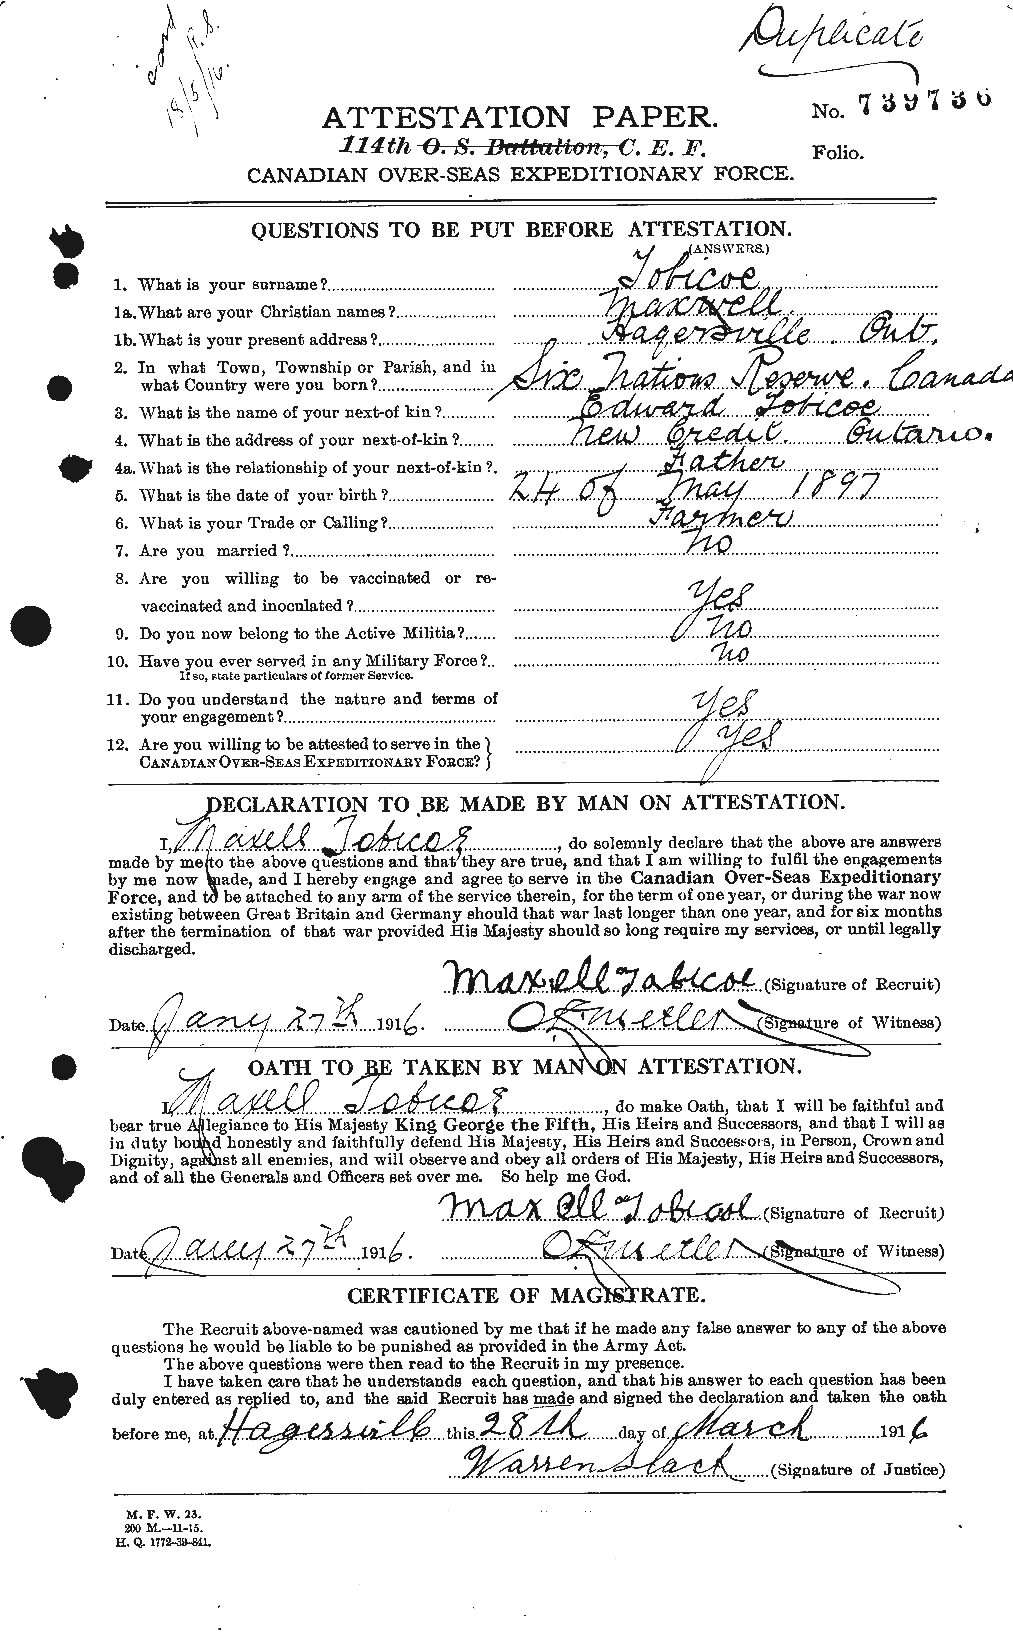 Duplicate
card
18/5/16.
R. S.
No. 739736
ATTESTATION PAPER.
114th O. S. Battalion, C. E. F.
Folio.
CANADIAN OVER-SEAS EXPEDITIONARY FORCE.
QUESTIONS TO BE PUT BEFORE ATTESTATION.
(ANSWERS.)
1. What is your surname? Tobicoe
1a. What are your Christian names? Maxwell.
1b. What is your present address? Hagersville. Ont.
2. In what Town, Township or Parish, and in
what Country were you born? Six Nations Reserve. Canada
3. What is the name of your next-of kin? Edward Tobicoe
4. What is the address of your next-of-kin? New Credit. Ontario.
4a. What is the relationship of your next-of-kin? Father
5. What is the date of your birth? 24 of May 1897
6. What is your Trade or Calling? Farmer
7. Are you married? No
8. Are you willing to be vaccinated or re-
vaccinated and inoculated? Yes
9. Do you now belong to the Active Militia? No
10. Have you ever served in any Military Force? No
If so, state particulars of former Service.
11. Do you understand the nature and terms of
your engagement? Yes
12. Are you willing to be attested to serve in the
CANADIAN OVER-SEAS EXPEDITIONARY FORCE? } Yes
DECLARATION TO BE MADE BY MAN ON ATTESTATION.
I, Maxell Tobicoe, do solemnly declare that the above are answers
made by me to the above questions and that they are true, and that I am willing to fulfil the engagements
by me now made, and I hereby engage and agree to serve in the Canadian Over-Seas Expeditionary
Force, and to be attached to any arm of the service therein, for the term of one year, or during the war now
existing between Great Britain and Germany should that war last longer than one year, and for six months
after the termination of that war provided His Majesty should so long require my services, or until legally
discharged.
Maxell Tobicoe (Signature of Recruit)
Date Jany 27th 1916. (Signature of Witness)
OATH TO BE TAKEN BY MAN ON ATTESTATION.
I, Maxell Tobicoe, do make Oath, that I will be faithful and
bear true Allegiance to His Majesty King George the Fifth, His Heirs and Successors, and that I will as
in duty bound honestly and faithfully defend His Majesty, His Heirs and Successors, in Person, Crown and
Dignity, against all enemies, and will observe and obey all orders of His Majesty, His Heirs and Successors,
and of all the Generals and Officers set over me. So help me God.
Maxell Tobicoe (Signature of Recruit)
Date Jany 27th 1916. (Signature of Witness)
CERTIFICATE OF MAGISTRATE.
The Recruit above-named was cautioned by me that if he made any false answer to any of the above
questions he would be liable to be punished as provided in the Army Act.
The above questions were then read to the Recruit in my presence.
I have taken care that he understands each question, and that his answer to each question has been
duly entered as replied to, and the said Recruit has made and signed the declaration and taken the oath
before me, at Hagersville this 28th day of March 1916
Warren Slack (Signature of Justice)
M. F. W. 23.
200 M.—11-15.
H. Q. 1772-39-841.